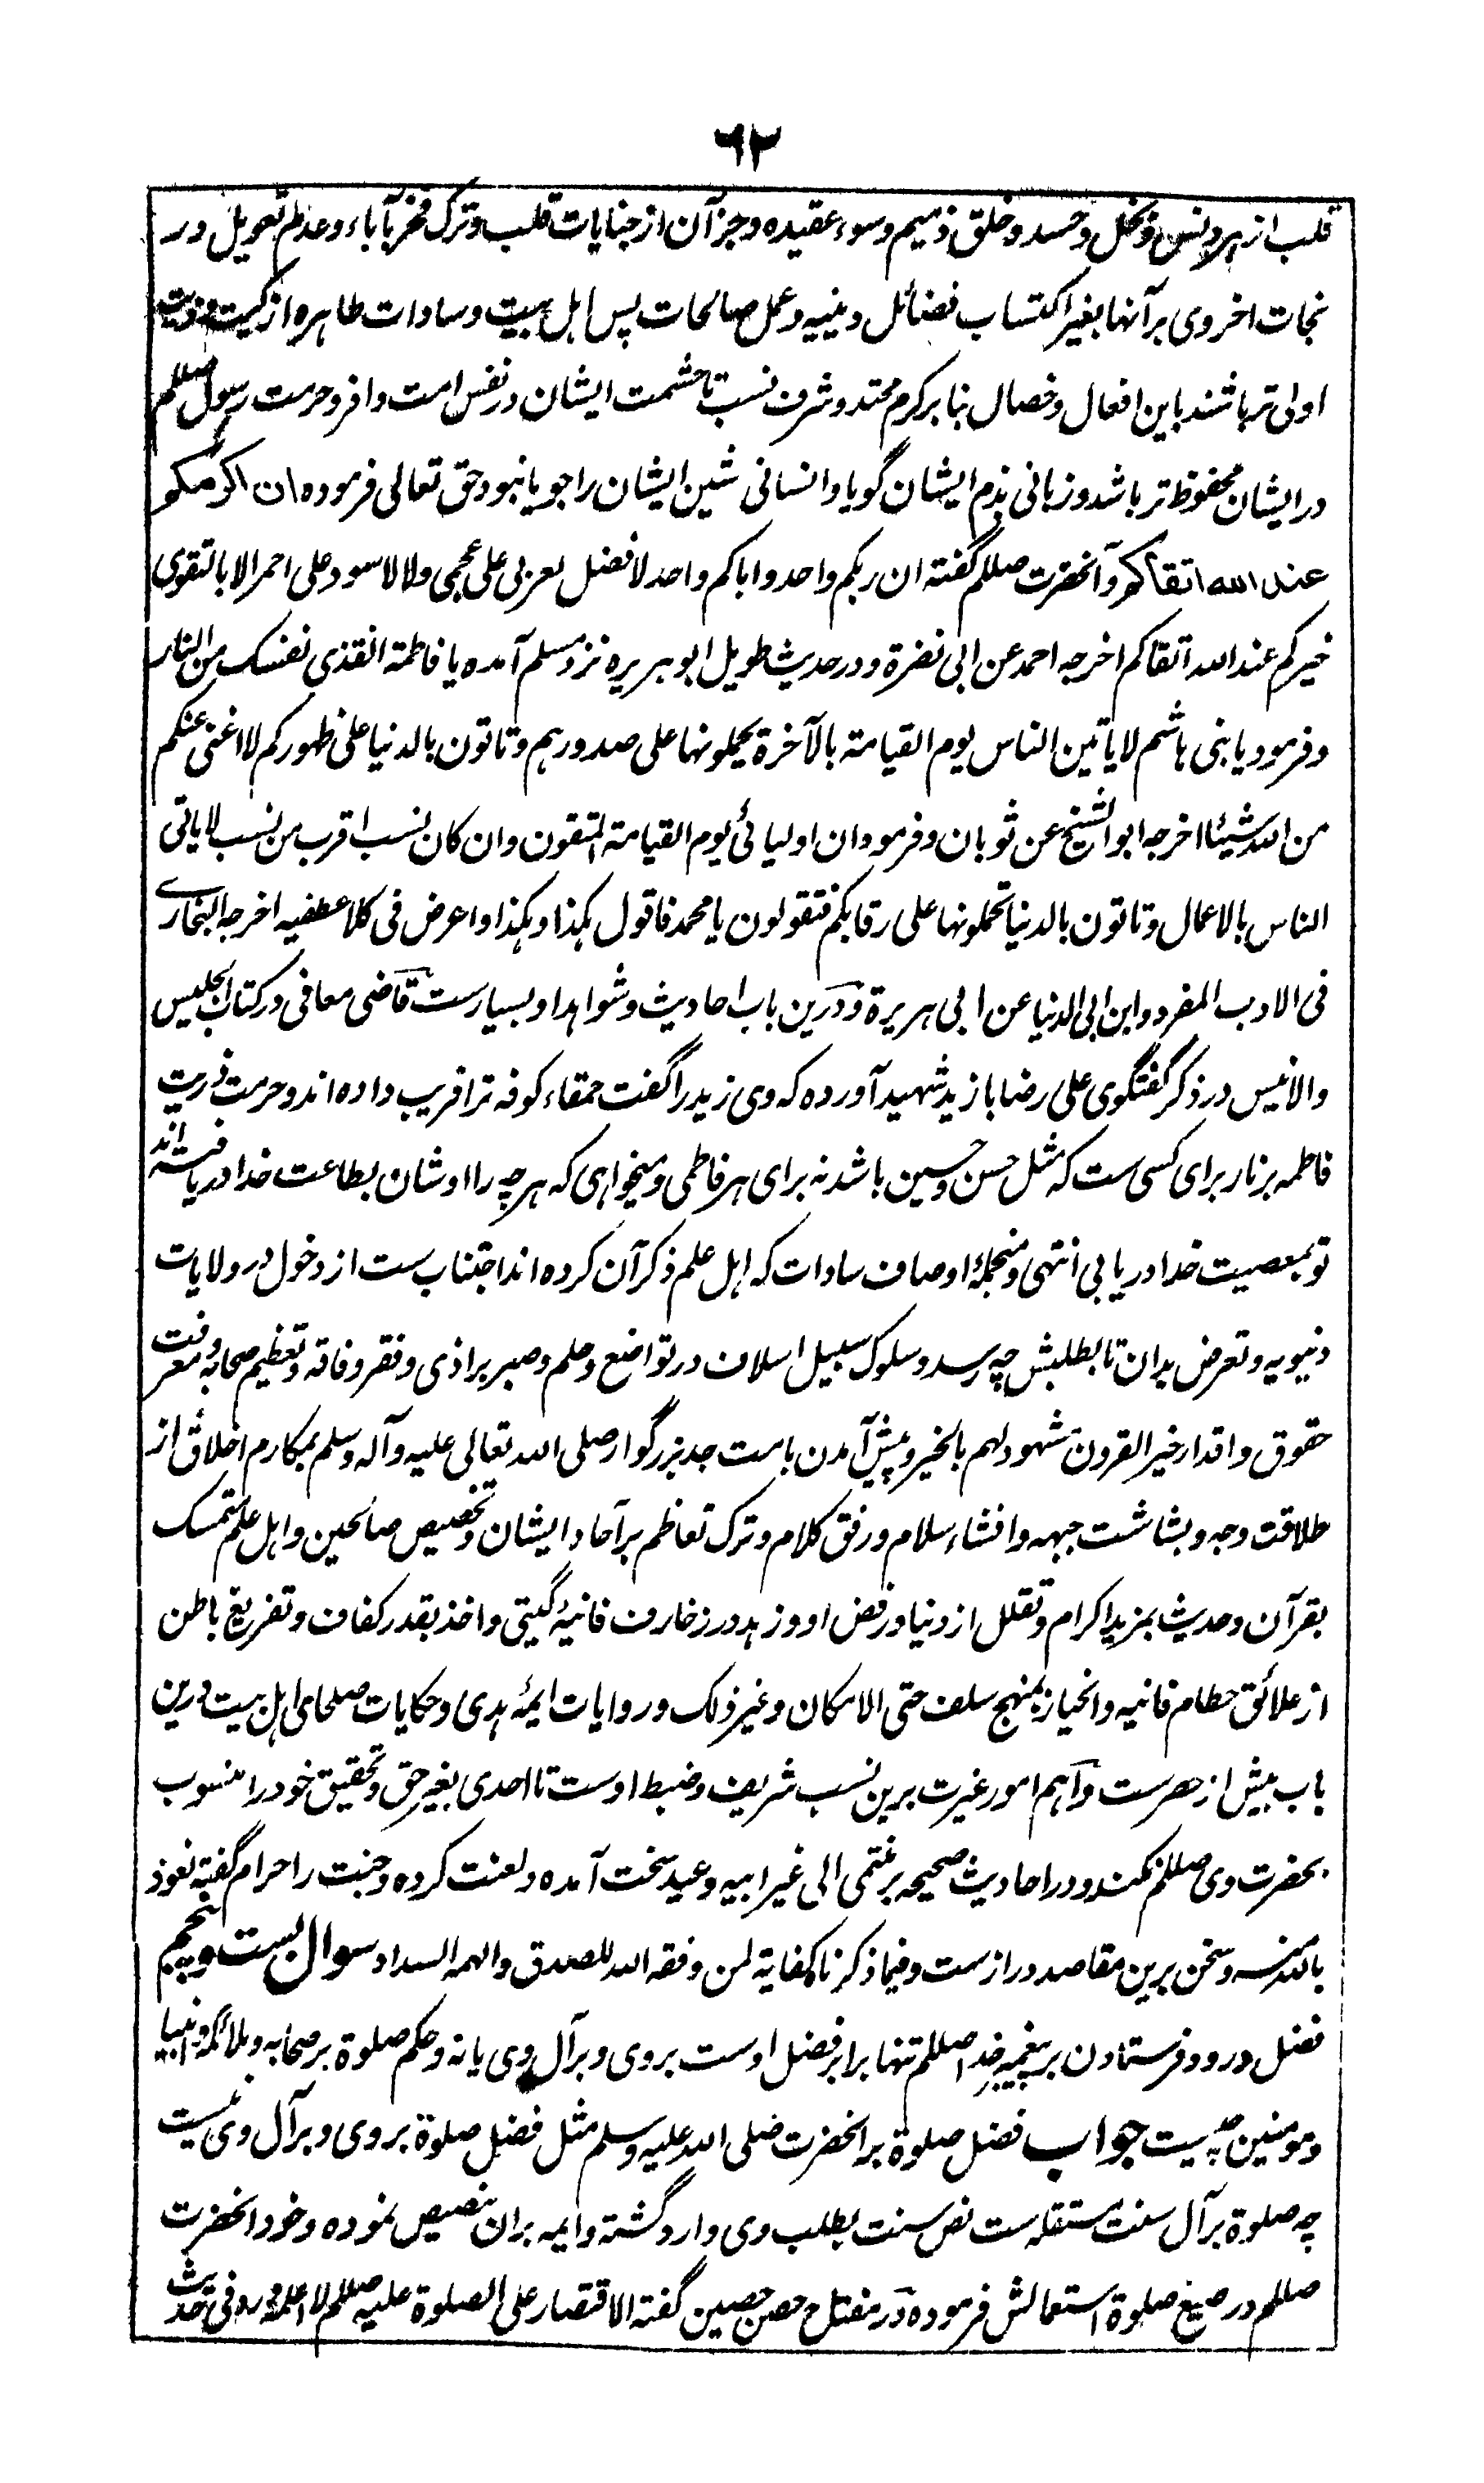 ۶۲
قلب از هر دنس و بخل و حسد و خلق ذمیم و سوء عقیده و جز آن از جنایات قلب و ترک فخر بآباء و عدم تعویل در
نجات اخروی بر آنها بغیر اکتساب فضائل دینیه و عمل صالحات پس اهل بیت و سادات طاهره از
اولی تر باشند باین افعال و خصال بنا بر کرم محتد و شرف نسب تا حشمت ایشان در نفس امت وافر و حرمت رسول صللم
در ایشان محفوظ تر باشد و زبانی بذم ایشان گویا و انسانی شین ایشان را جویا نبود حق تعالی فرموده ان اکرمکم
عند الله اتقاکم و آنحضرت صللم گفته ان ربکم واحد و اباکم واحد لا فضل لعربی علی عجمی ولا لاسود علی احمر الا بالتقوی
خیرکم عند الله اتقاکم اخرجه احمد عن ابی نضرة و در حدیث طویل ابو هریره نزد مسلم آمده یا فاطمة انقذی نفسک من النار
و فرمود یا بنی هاشم لا یاتین الناس یوم القیامة بالآخرة یحملونها علی صدورهم و تاتون بالدنیا علی ظهورکم لا اغنی عنکم
من الله شیئا اخرجه ابو الشیخ عن ثوبان و فرمود ان اولیائی یوم القیامة المتقون و ان کان نسب اقرب من نسب لا یاتی
الناس بالاعمال و تاتون بالدنیا تحملونها علی رقابکم فتقولون یا محمد فاقول هکذا و هکذا و اعرض فی کلا عطفیه اخرجه البخاری
فی الادب المفرد و ابن ابی الدنیا عن ابی هریرة و درین باب احادیث و شواهد او بسیارست قاضی معافی در کتاب الجلیس
والانیس در ذکر گفتگوی علی رضا با زید شهید آورده که وی زید را گفت حمقاء کوفه ترا فریب داده اند و حرمت ذریت
فاطمه بر نار برای کسی ست که مثل حسن و حسین باشد نه برای هر فاطمی و میخواهی که هر چه را اوشان بطاعت خدا دریافته اند
تو بمعصیت خدا دریابی انتهی و منجملهٔ اوصاف سادات که اهل علم ذکر آن کرده اند اجتناب ست از دخول در ولایات
دنیویه و تعرض بدان تا بطلبش چه رسد و سلوک سبیل اسلاف در تواضع و حلم و صبر بر اذی و فقر و فاقه و تعظیم صحابه و معرفت
حقوق و اقدار خیر القرون مشهود لهم بالخیر و پیش آمدن با امت جد بزرگوار صلی الله تعالی علیه و آله و سلم بمکارم اخلاق از
طلاقت وجه و بشاشت جبهه و افشاء سلام و رفق کلام و ترک تعاظم بر آحاد ایشان و تخصیص صالحین و اهل علم متمسک
بقرآن و حدیث بمزید اکرام و تقلل از دنیا و رفض او و زهد در زخارف فانیهٔ گیتی و اخذ بقدر کفاف و تفریغ باطن
از علائق حطام فانیه و انحیاز بمنهج سلف حتی الامکان و غیر ذلک و روایات ایمهٔ هدی و حکایات صلحای اهل بیت درین
باب بیش از حصرست و اهم امور غیرت برین نسب شریف و ضبط اوست تا احدی بغیر حق و تحقیق خود را منسوب
بحضرت وی صللم نکند و در احادیث صحیحه بر منتمی الی غیر ابیه وعید سخت آمده و لعنت کرده و جنت را حرام گفته نعوذ
بالله منه و سخن برین مقاصد درازست و فیما ذکرنا کفایة لمن وفقه الله للصدق و الهمه السداد سوال بست و پنجم
فضل درود فرستادن بر پیغمبر خدا صللم تنها برابر فضل اوست بروی و بر آل وی یا نه و حکم صلوة بر صحابه و ملائکه و انبیا
و مومنین چیست جواب فضل صلوة بر آنحضرت صلی الله علیه وسلم مثل فضل صلوة بروی و بر آل وی نیست
چه صلوة بر آل سنت مستقله ست نص سنت بطلب وی وارد گشته و ایمه بران تنصیص نموده و خود آنحضرت
صللم در صیغ صلوة استعمالش فرموده در مفتاح حصن حصین گفته الاقتصار علی الصلوة علیه صللم لا اعلمه ورد فی حدیث